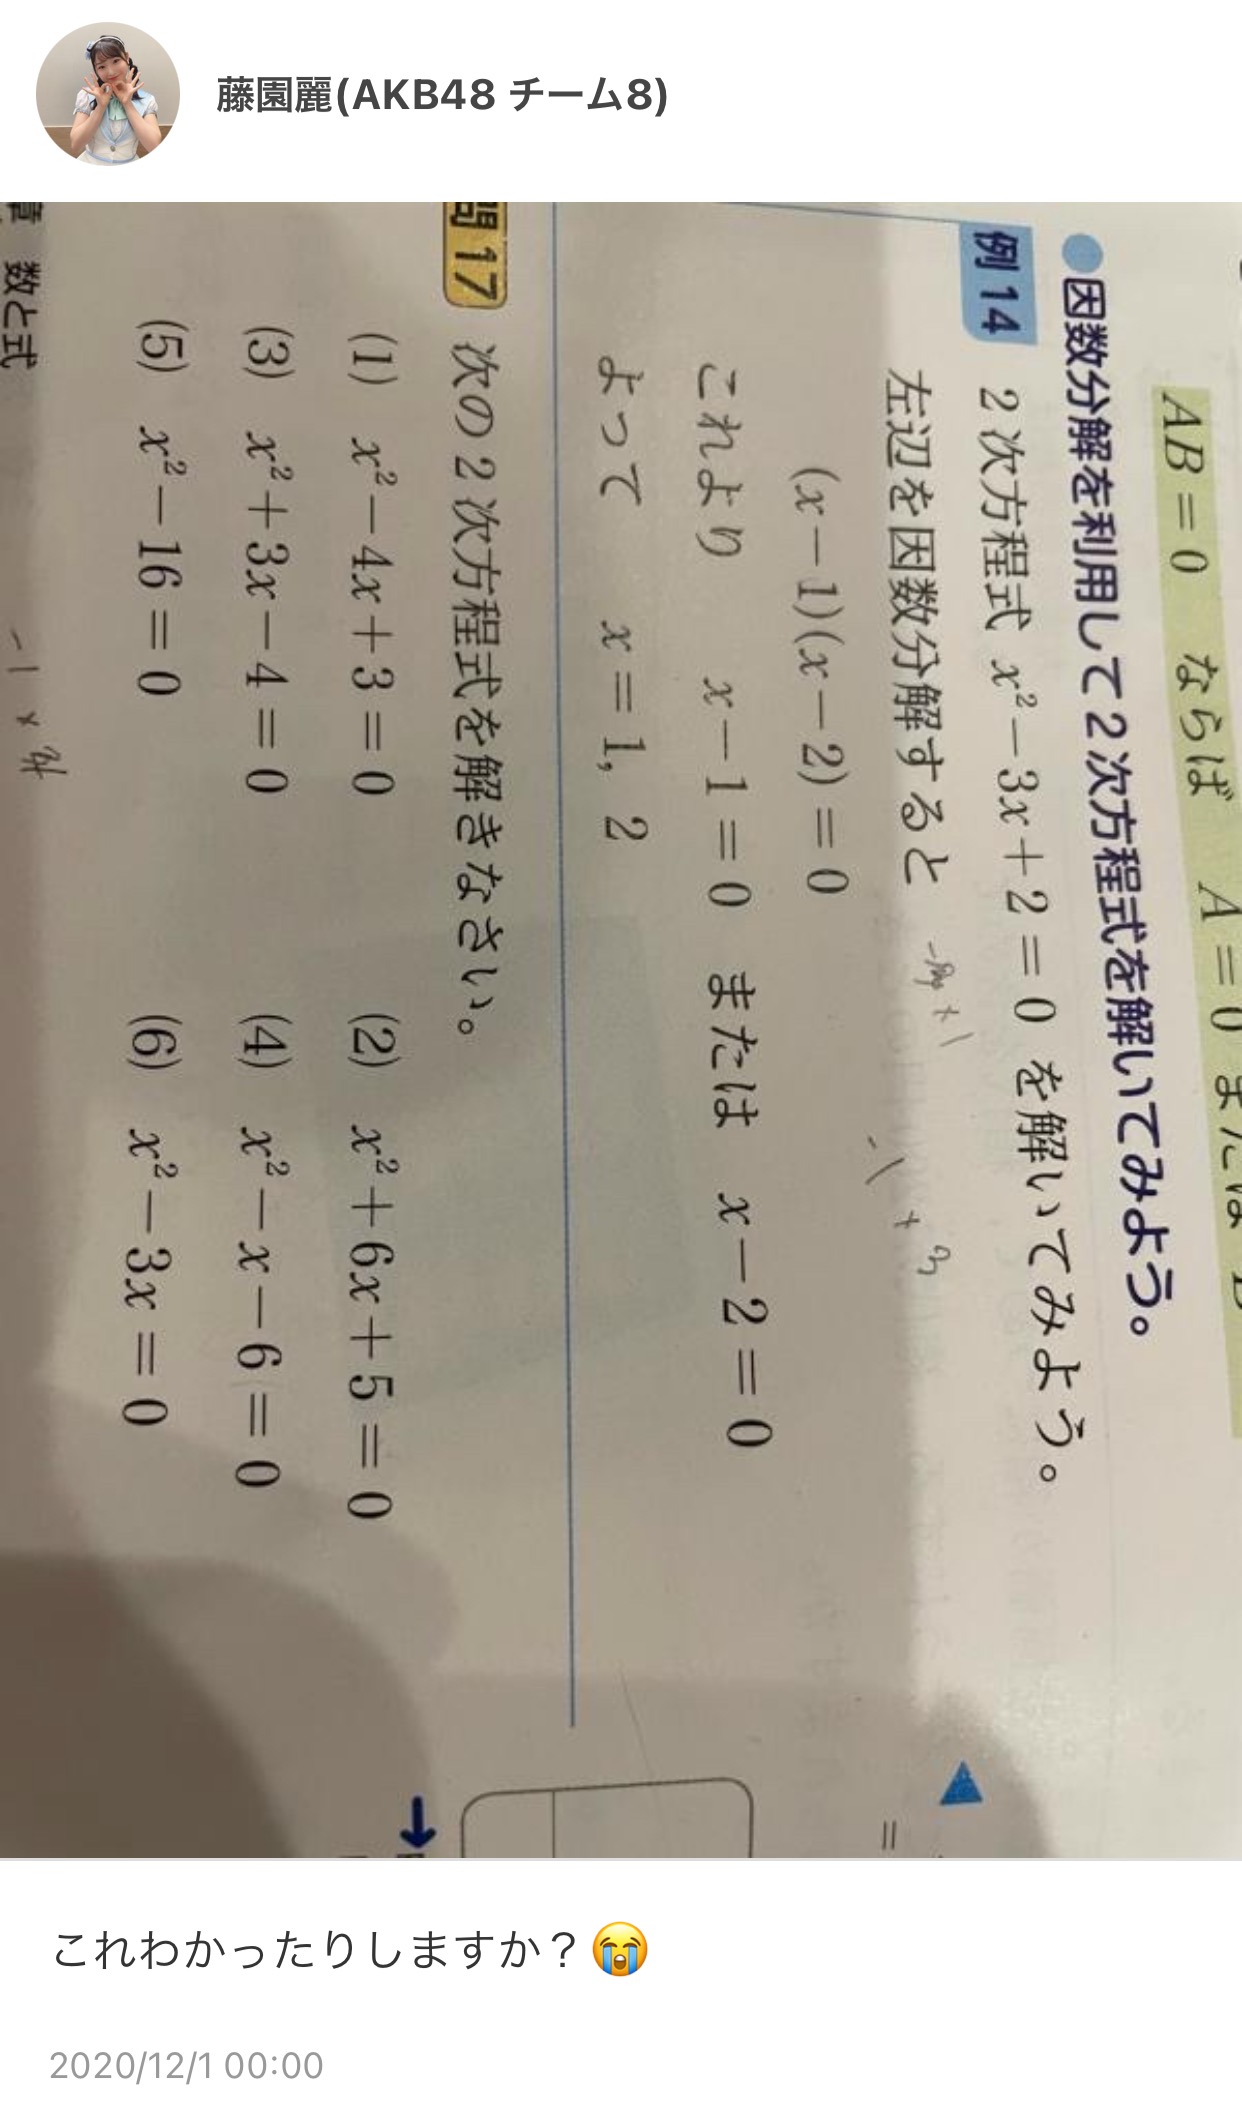 藤園麗(AKB48 チーム8)
AB=0 ならば A=0 または B
●因数分解を利用して2次方程式を解いてみよう。
例14 2次方程式 x²-3x+2=0 を解いてみよう。
左辺を因数分解すると
(x-1)(x-2)=0
これより x-1=0 または x-2=0
よって x=1, 2
問17 次の2次方程式を解きなさい。
(1) x²-4x+3=0 (2) x²+6x+5=0
(3) x²+3x-4=0 (4) x²-x-6=0
(5) x²-16=0 (6) x²-3x=0
章 数と式
これわかったりしますか？😭
2020/12/1 00:00